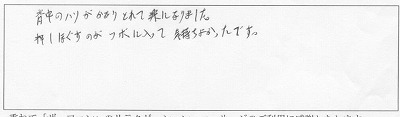 背中のハリがかなりとれて楽になりました。
押しほぐすのがツボに入って気持ちよかったです。